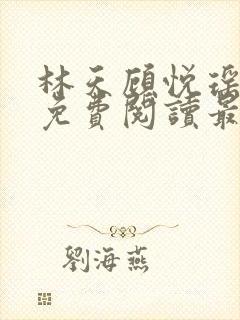 林天顾悦瑶
免費閱讀最
劉海燕